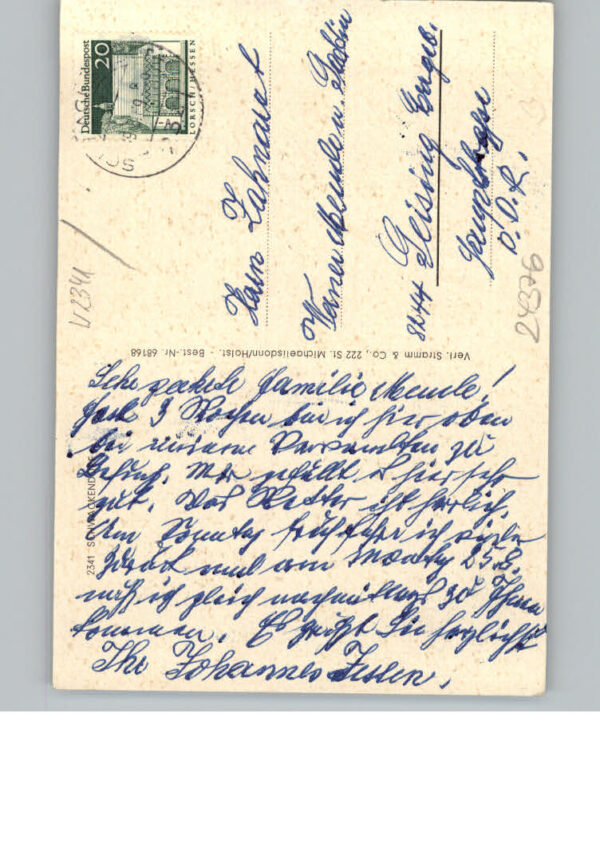 Deutsche Bundespost
20
LORSCH / HESSEN
Herrn Zahnarzt
Werner Mende u. Gattin
8244 Geising Erzgeb.
Hauptstraße
D.D.R.
V2341
24376
Verl. Stramm & Co., 222 St. Michaelisdonn/Holst. - Best.-Nr. 68168
2341 SCHWACKENDORF
Sehr geehrte Familie Mende!
Fast 3 Wochen bin ich hier oben
bei meinen Verwandten zu
Besuch. Mir gefällt es hier sehr
gut. Das Wetter ist herrlich.
Am Sonntag früh fahre ich wieder
zurück und am Montag 25.8.
muß ich gleich nachmittags zu Ihnen
kommen. Es grüßt Sie herzlichst
Ihr Johannes Jessen.